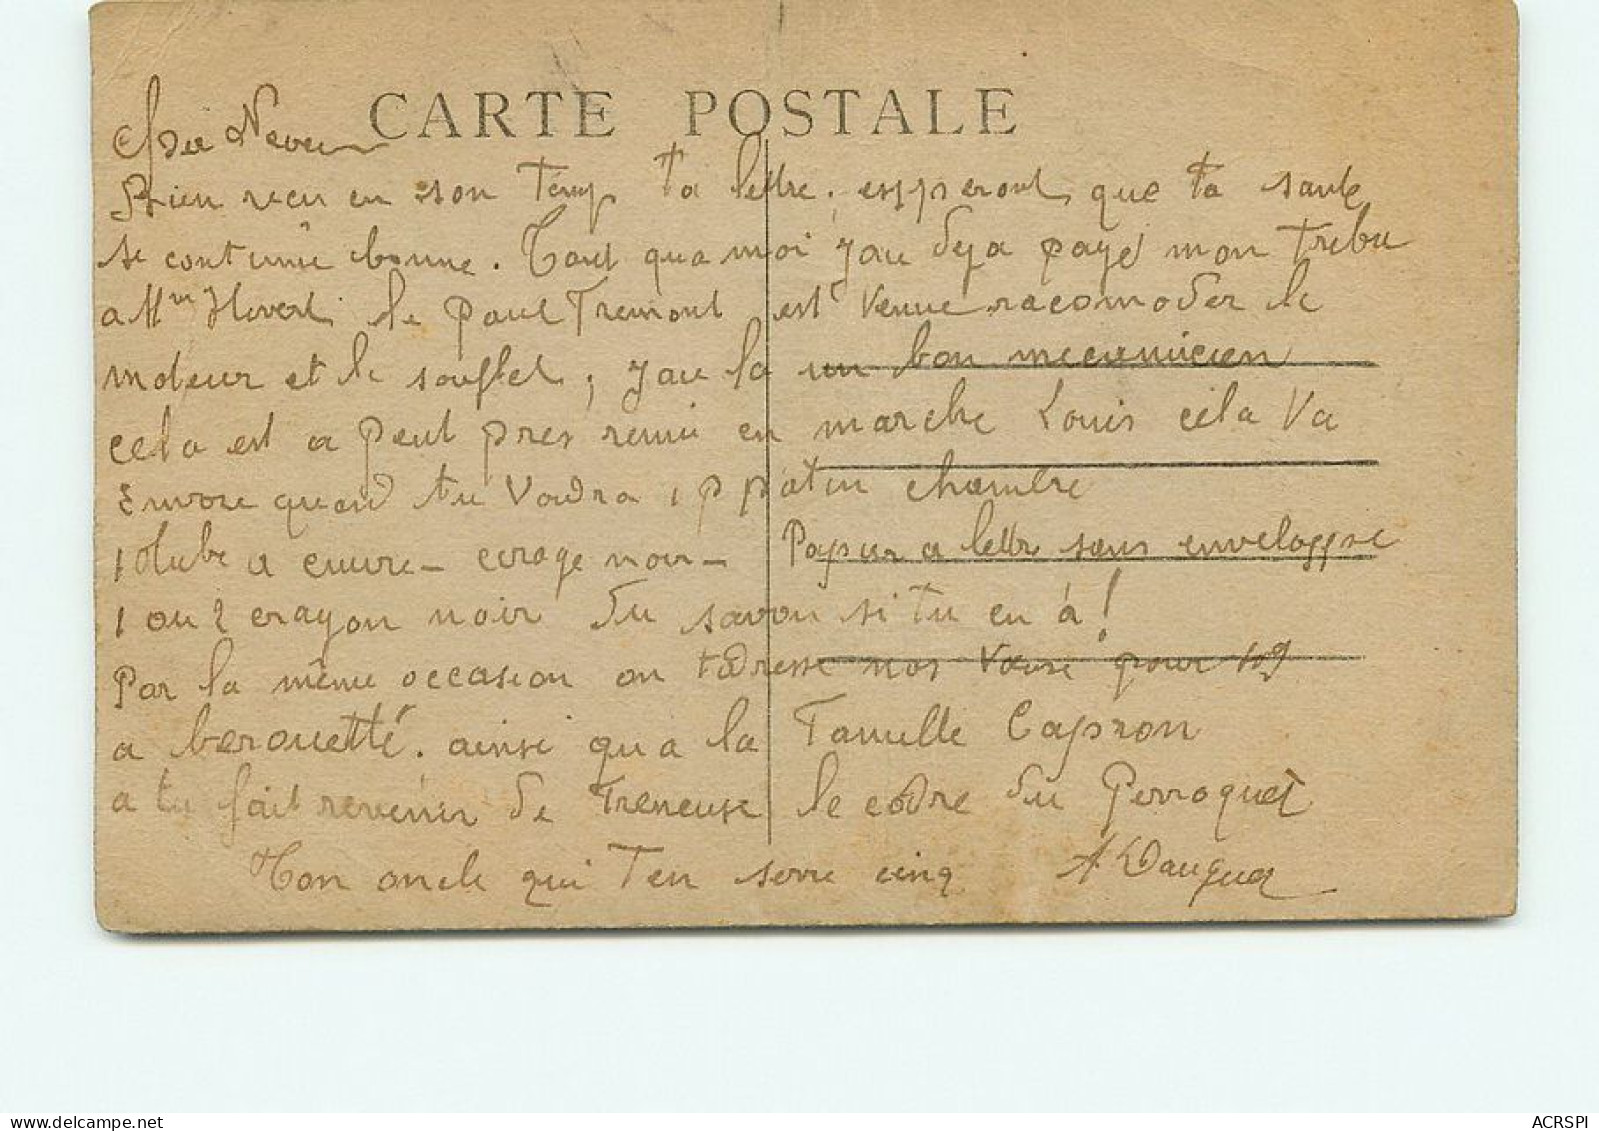 CARTE POSTALE
Cher Neveu
Bien recu en son temp ta lettre. essperont que ta sante
se contunue bonne. Tout qua moi jai deja payé mon tribu
a Mm Hivert le pont Tremont est venue racomoder le
moteur et le soufflet, jai la un bon mecanicien
cela est a peut pres remi en marche Louis cela va
Envoie quand tu voudra 1 p patin chambre
1 tube a cuivre - cirage noir - Papier a lettre sans enveloppe
1 ou 2 crayon noir du savon si tu en à!
Par la même occasion on tadresse nos Vœux pour 19
a berouetté. ainsi qu a la Famille Capron
a tu fait revenir de Treneuse le cadre du Perroquet
Ton oncle qui Ten serre cinq
ACRSPI